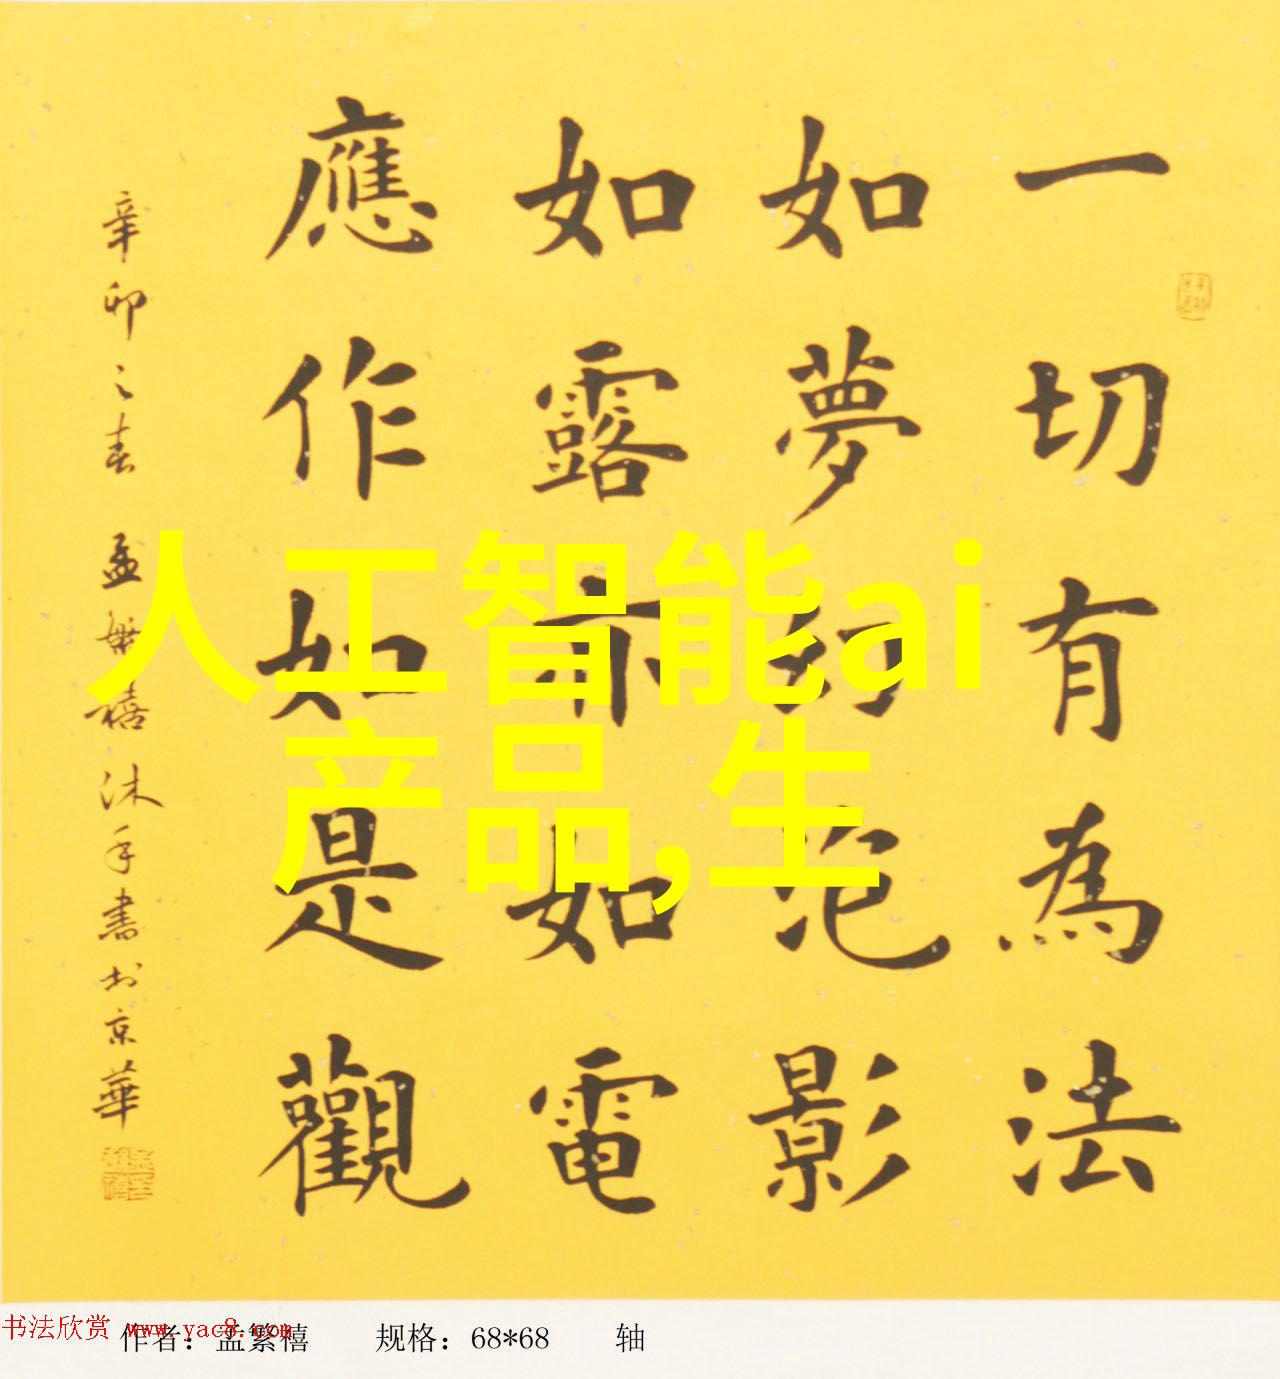 一切有為法
如夢幻泡影
如露亦如電
應作如是觀
辛卯之春 孟繁禧沐手書於京華
人工智能ai
产品,生
书法欣赏 www.yac8.com
作者：孟繁禧 规格：68*68 轴